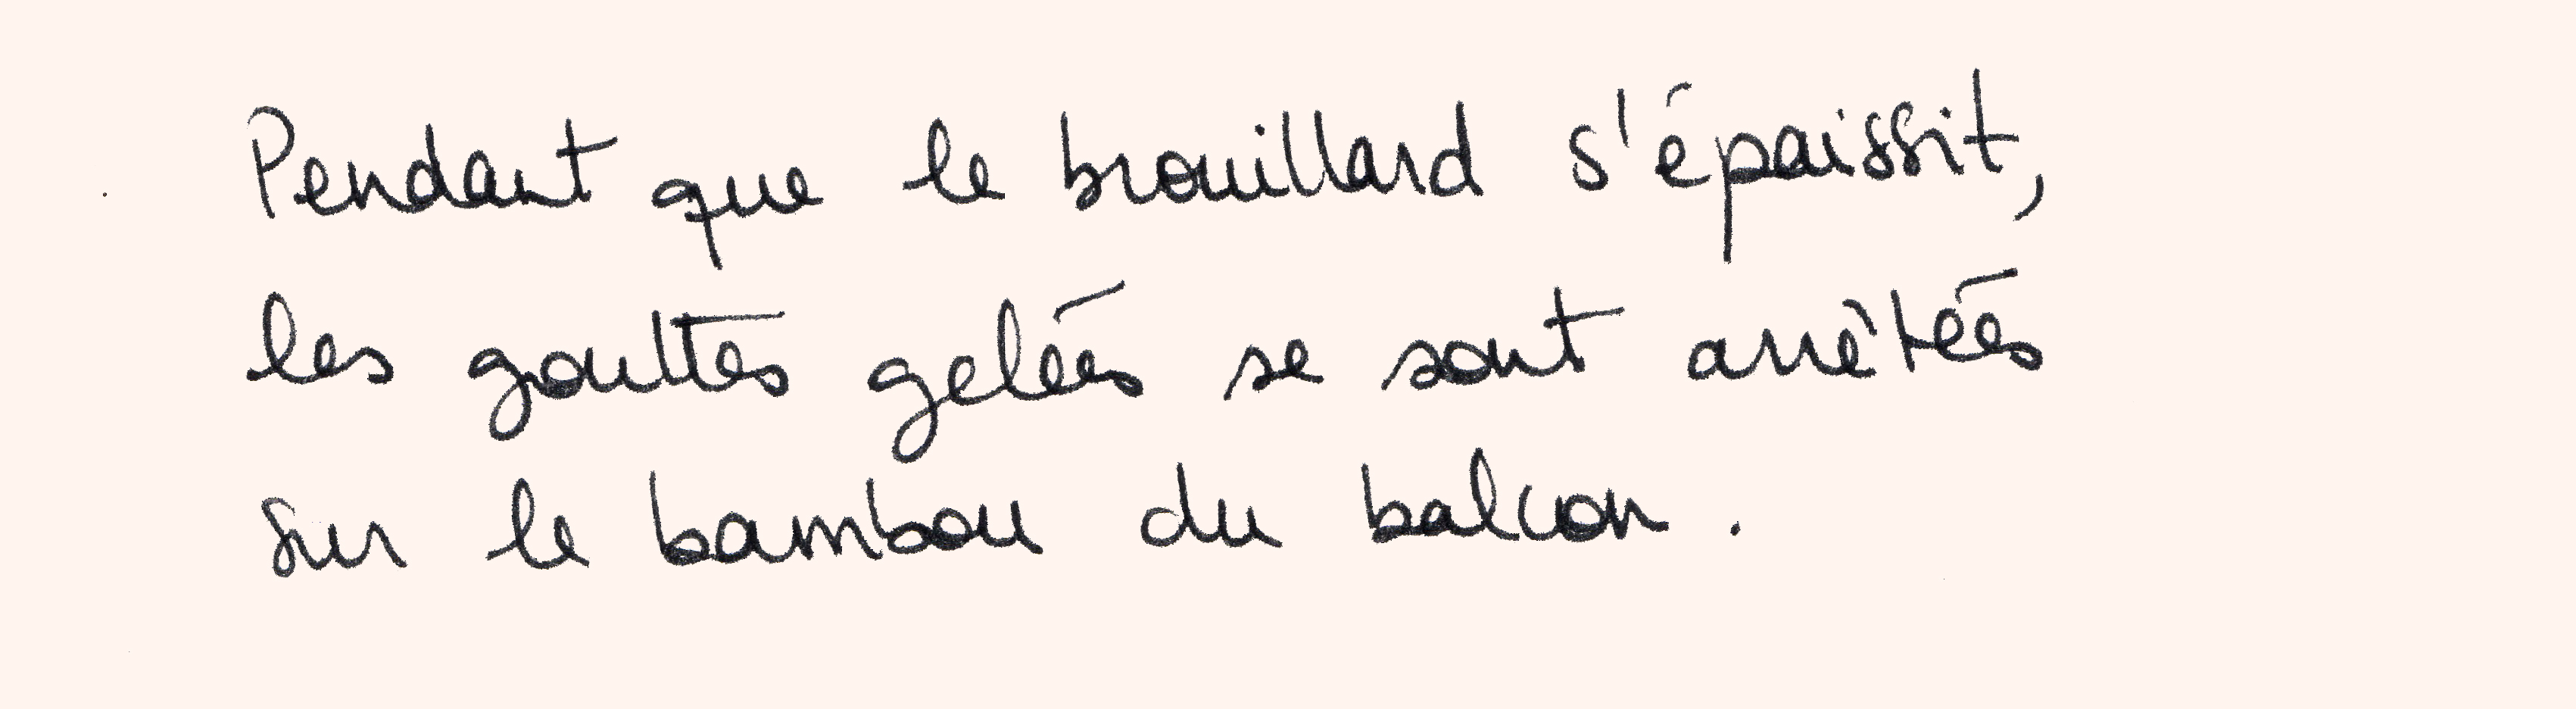 Pendant que le brouillard s'épaissit,
les gouttes gelées se sont arrêtées
sur le bambou du balcon.